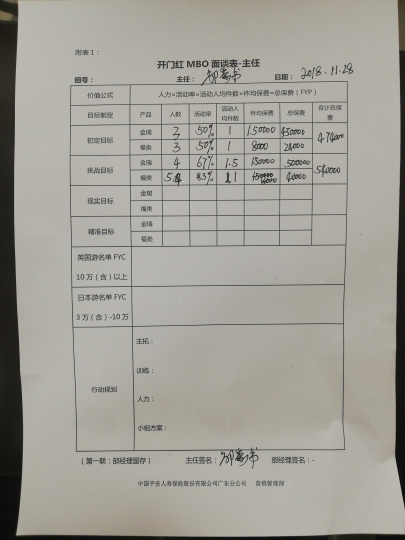 附表1：
开门红 MBO 面谈表-主任
组号： 主任： 日期： 2018.11.28
价值公式 人力×活动率×活动人均件数×件均保费=总保费（FYP）
目标制定 产品 人数 活动率 活动人均件数 件均保费 总保费 合计总保费
初定目标 金瑞 3 50% 1 150000 450000 474000
福类 3 50% 1 8000 24000
挑战目标 金瑞 4 67% 1.5 500000 540000
福类 83% 40000
现实目标 金瑞
福类
精准目标 金瑞
福类
英国游名单 FYC
10 万（含）以上
日本游名单 FYC
3 万（含）-10 万
行动规划
主拓：
训练：
人力：
小组方案：
（第一联：部经理留存） 主任签名： 部经理签名：-
中国平安人寿保险股份有限公司广东分公司 营销管理部